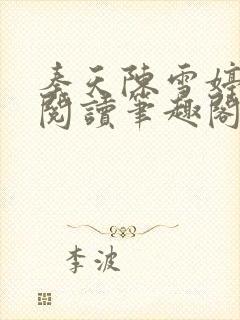 秦天陳雪婷
閱讀筆趣閣
李波